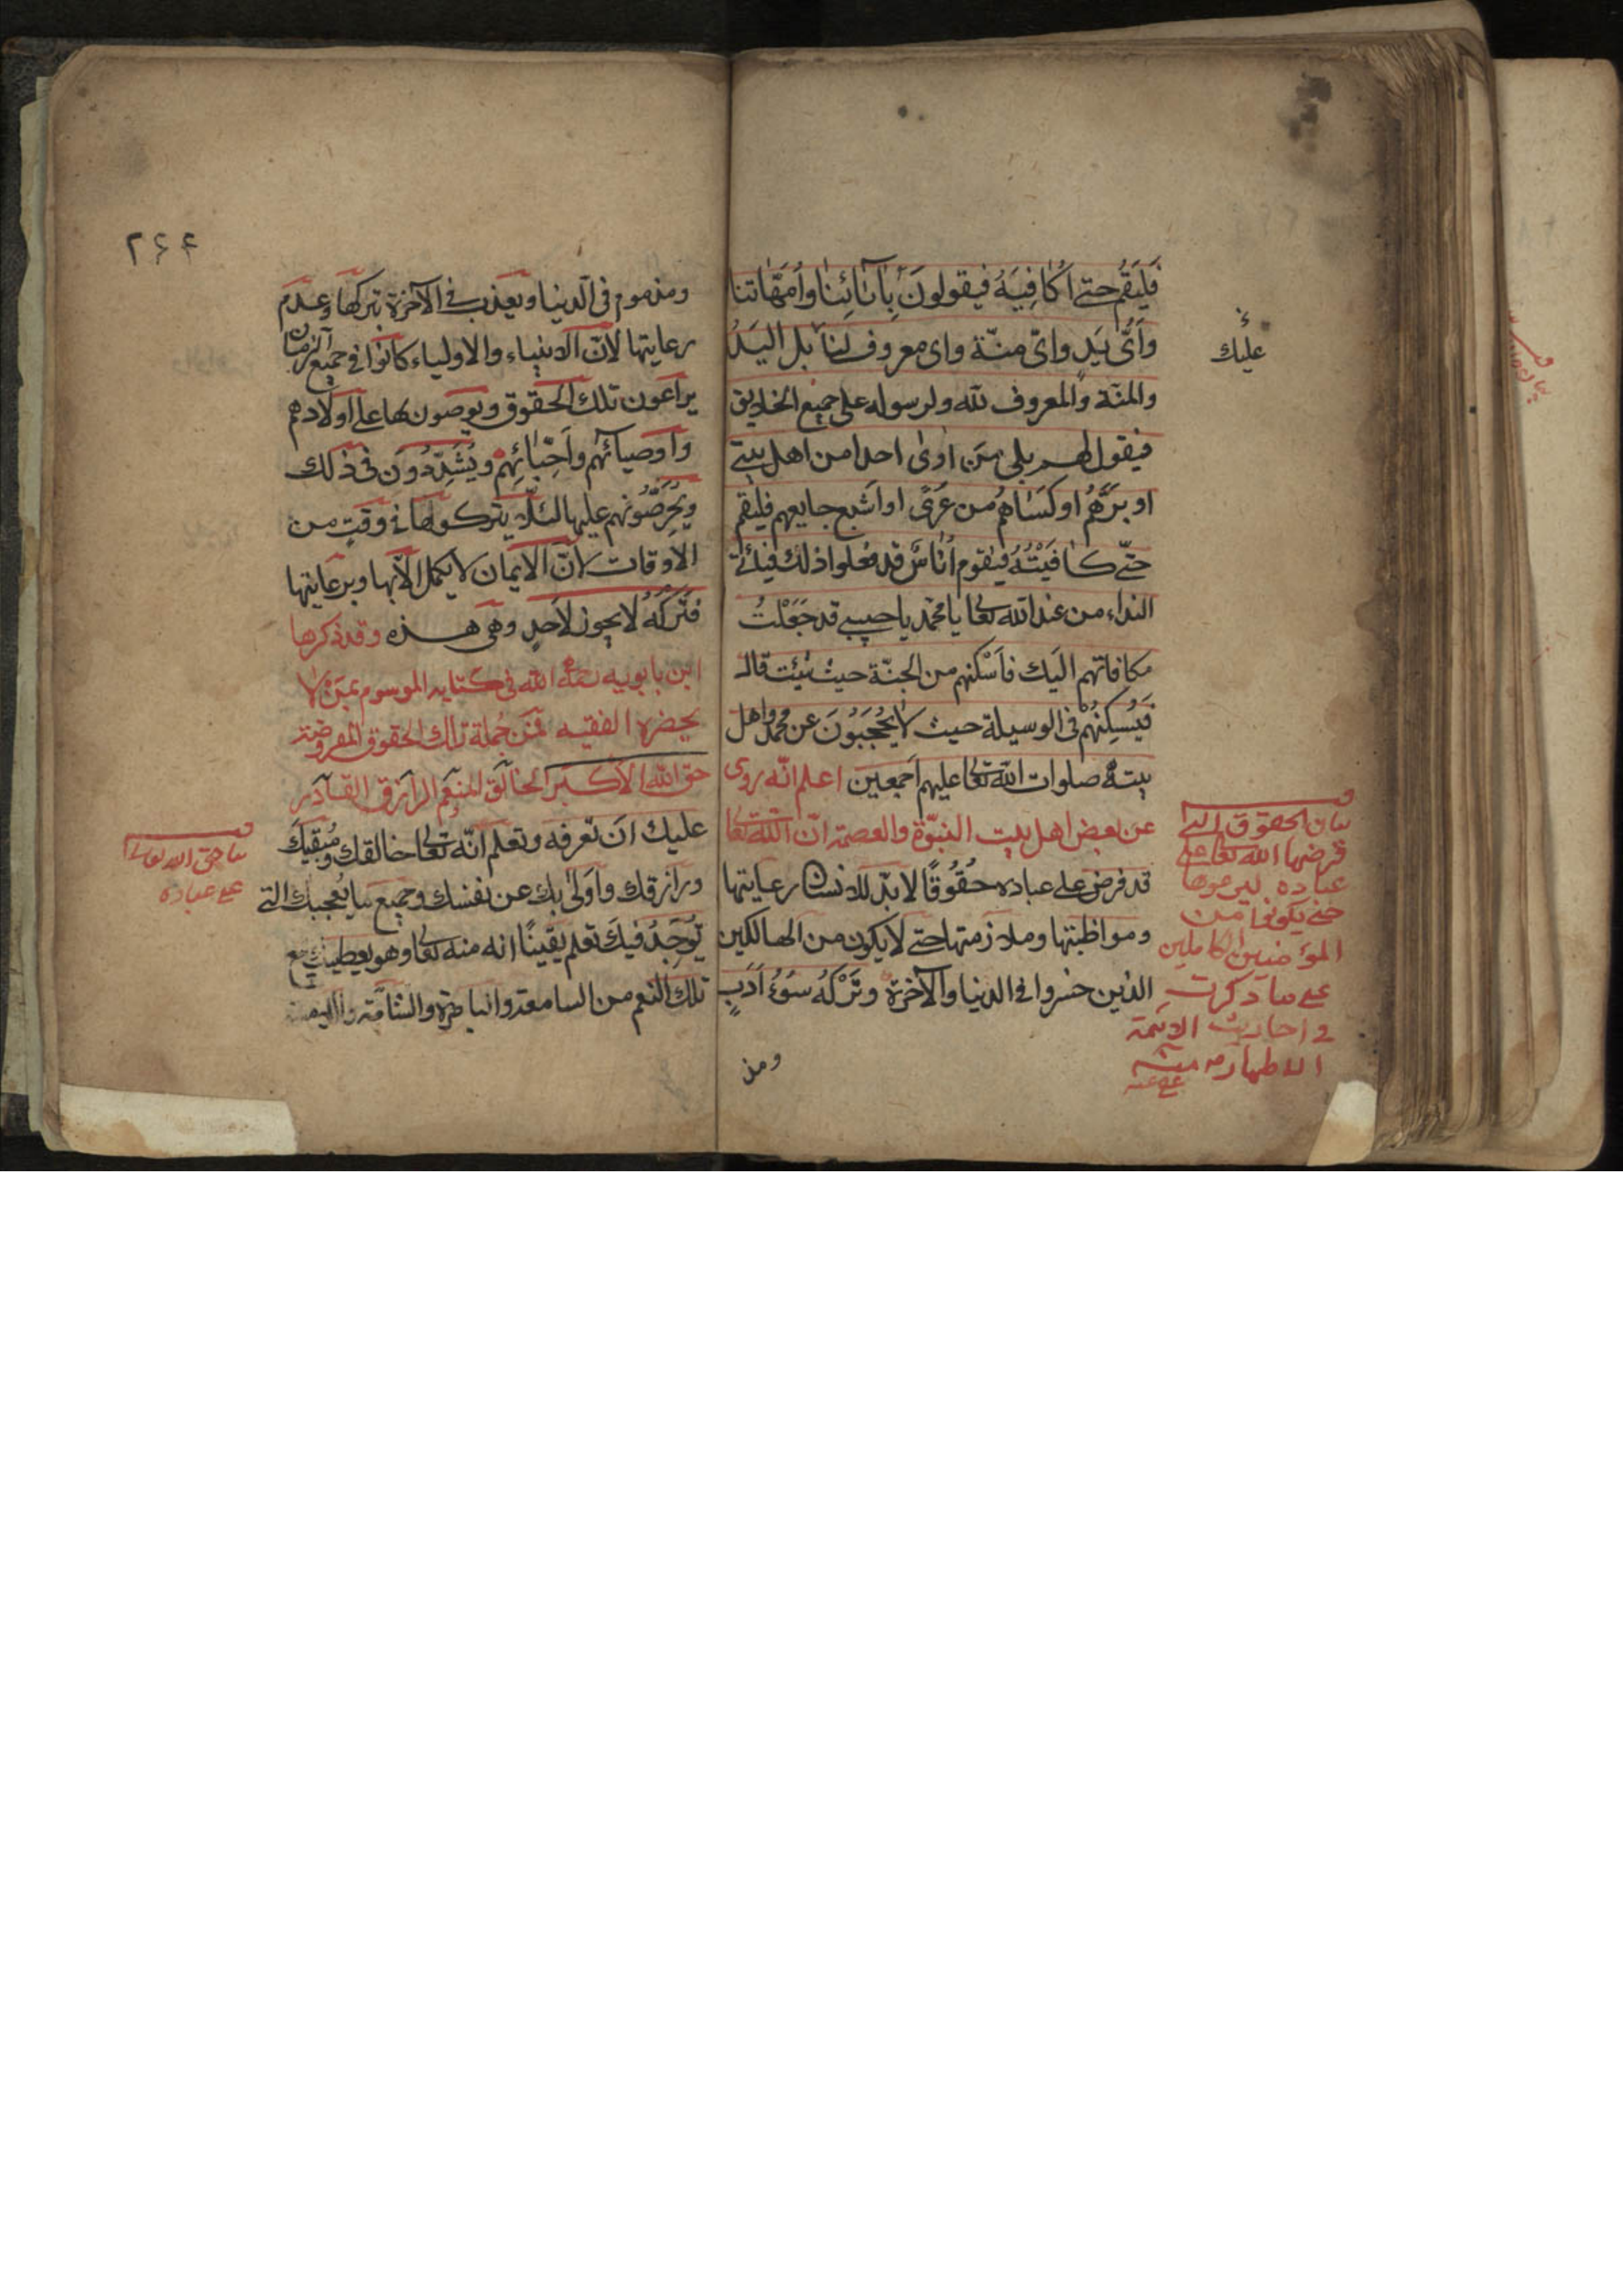 فَلْيَقُم حتى اُكافِيَهُ فيقولونَ بِاٰبٰائِنٰا واُمَّهٰاتنا
وَاَىُّ يَدٍ واىّ منّة واى معروف لنا بل اليَدُ
والمنّة والمعروف لله ولرسوله على جميع الخلايق
فيقول لهم بلى مَن اٰوىٰ احدا من اهل بيتى
او بَرَّهُم او كَسٰاهُم من عَرىً او اَشبع جايعهم فليقم
حتّى كٰافَيْتُهُ فيقوم اُنٰاسٌ قد فعلوا ذلك فيأتى
النداء من عند الله تعالى يا محمّد يا حبيبى قد جَعَلْتُ
مكافاتهم اليَك فاَسْكنهم من الجنّة حيث شئت قال
فَيُسكِنُهُم فى الوسيلة حيث لا يُحْجَبُونَ عن محمّد واهل
بيته صلوات الله تعالى عليهم اَجمعين اعلم انّه روى
عن بعض اهل بيت النبوّة والعصمة انّ الله تعالى
قد فرض على عباده حُقُوقًا لا بدّ للانسان رعايتها
ومواظبتها وملازمتها حتى لا يكون من الهالكين
الذين خسروا فى الدنيا والآخرة وتَرْكُهُ سُوءُ اَدَبٍ
ومذ
عليك
بيان الحقوق التى
فرضها الله تعالى على
عباده ليرعوها
حتى يكونوا من
المؤمنين الكاملين
على ما ذكرت
فى احاديث الائمة
الاطهار منه
عفى عنه
٢٤٤
ومذموم فى الدنيا ويعذب فى الآخرة بتركها وعدم
رعايتها لأنّ الانبياء والاولياء كانوا فى جميع الزمان
يراعون تلك الحقوق ويوصون بها على اولادهم
واَوصيائهم واَحِبّٰائِهِم ويُشَدِّدُونَ فى ذلك
ويُحَرِّصُونهم عليها لئلّا يتركوها فى وقتٍ من
الاَوقات لانّ الايمان لا يكمل الاّ بها وبرعايتها
فَتَركُهُ لا يجوز لأحدٍ وهى هذه وقد ذكرها
ابن بابويه رحمه الله فى كتابه الموسوم بمَن لا
يحضره الفقيه فمن جُملة تلك الحقوق المفروضة
حق الله الاكبر الخالق المنعم الرازق القادر
عليك ان تعرفه وتعلم انّه تعالى خالقك ومُبقيك
ورازقك واَولىٰ بك عن نفسك وجميع ما يُعجبك التى
تُوجَدُ فيك تعلم يقينًا انه منه تعالى وهو يعطيك جميع
تلك النعم من السامعة والباصرة والشامّة واللامسة
بيان حق الله تعالى
على عباده